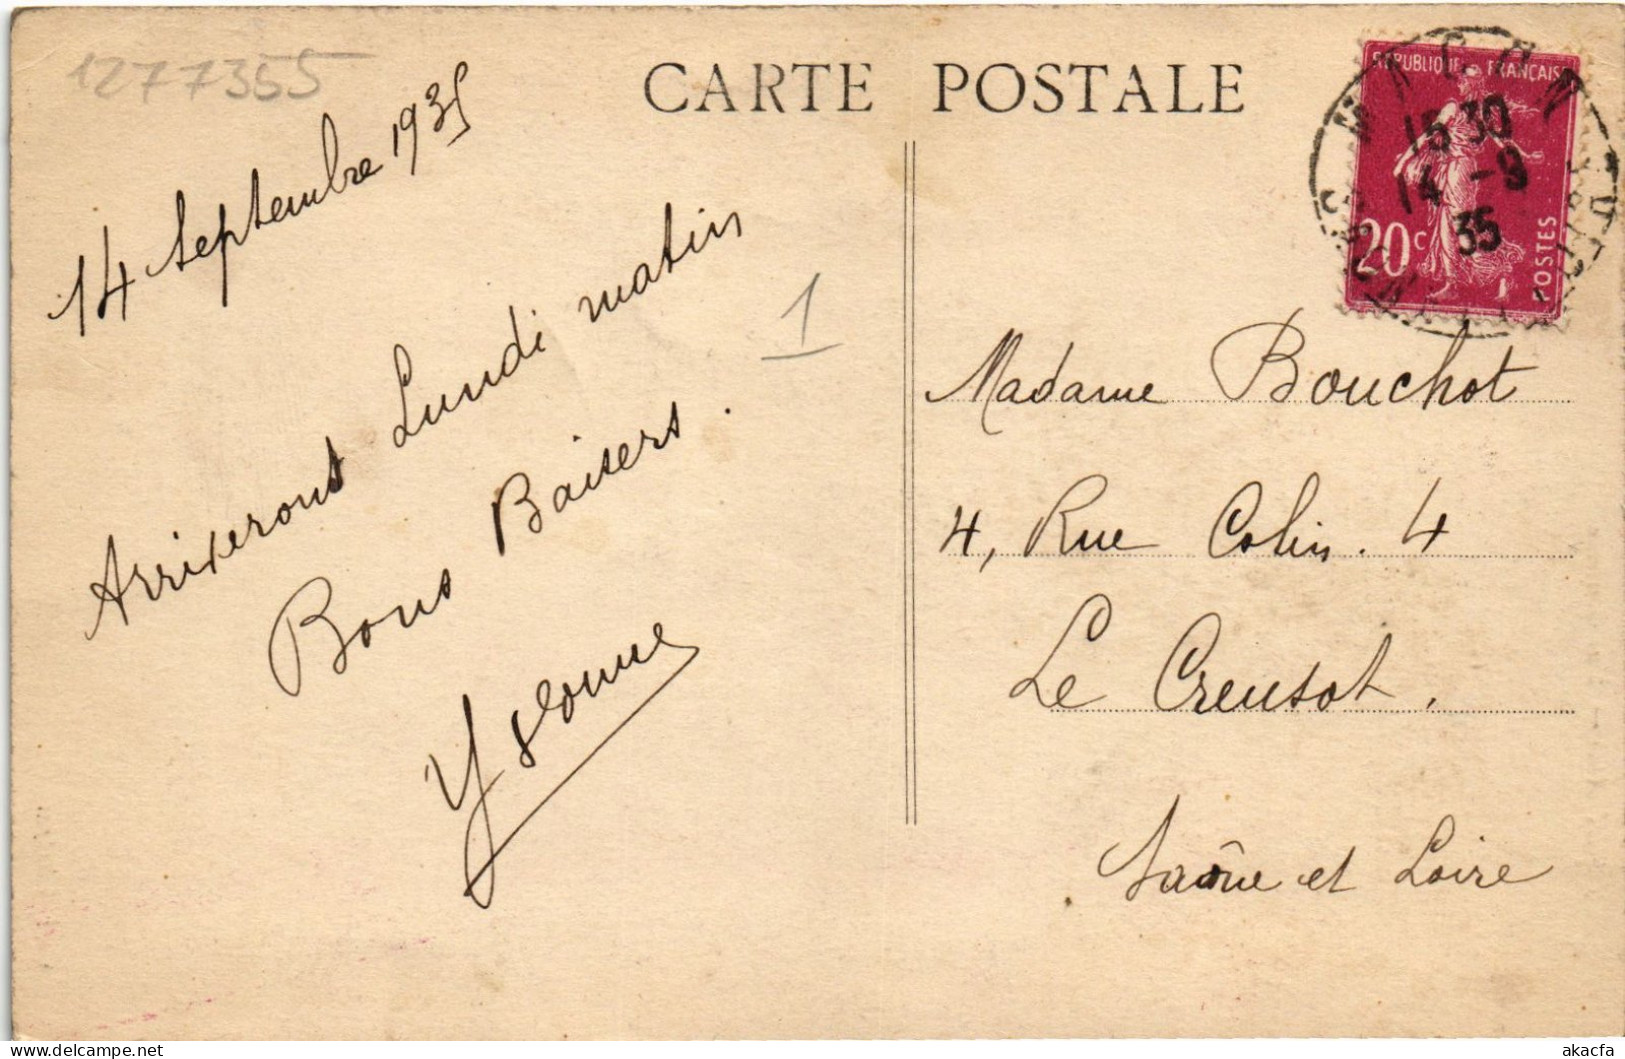 1277355
CARTE POSTALE
14 Septembre 1935
Arriverons Lundi matin
Bons Baisers.
Yvonne
1
REPUBLIQUE FRANÇAISE
20c
POSTES
MACON
15 30
14 -9
35
Madame Bouchot
4, Rue Colin. 4
Le Creusot.
Saône et Loire
akacfa